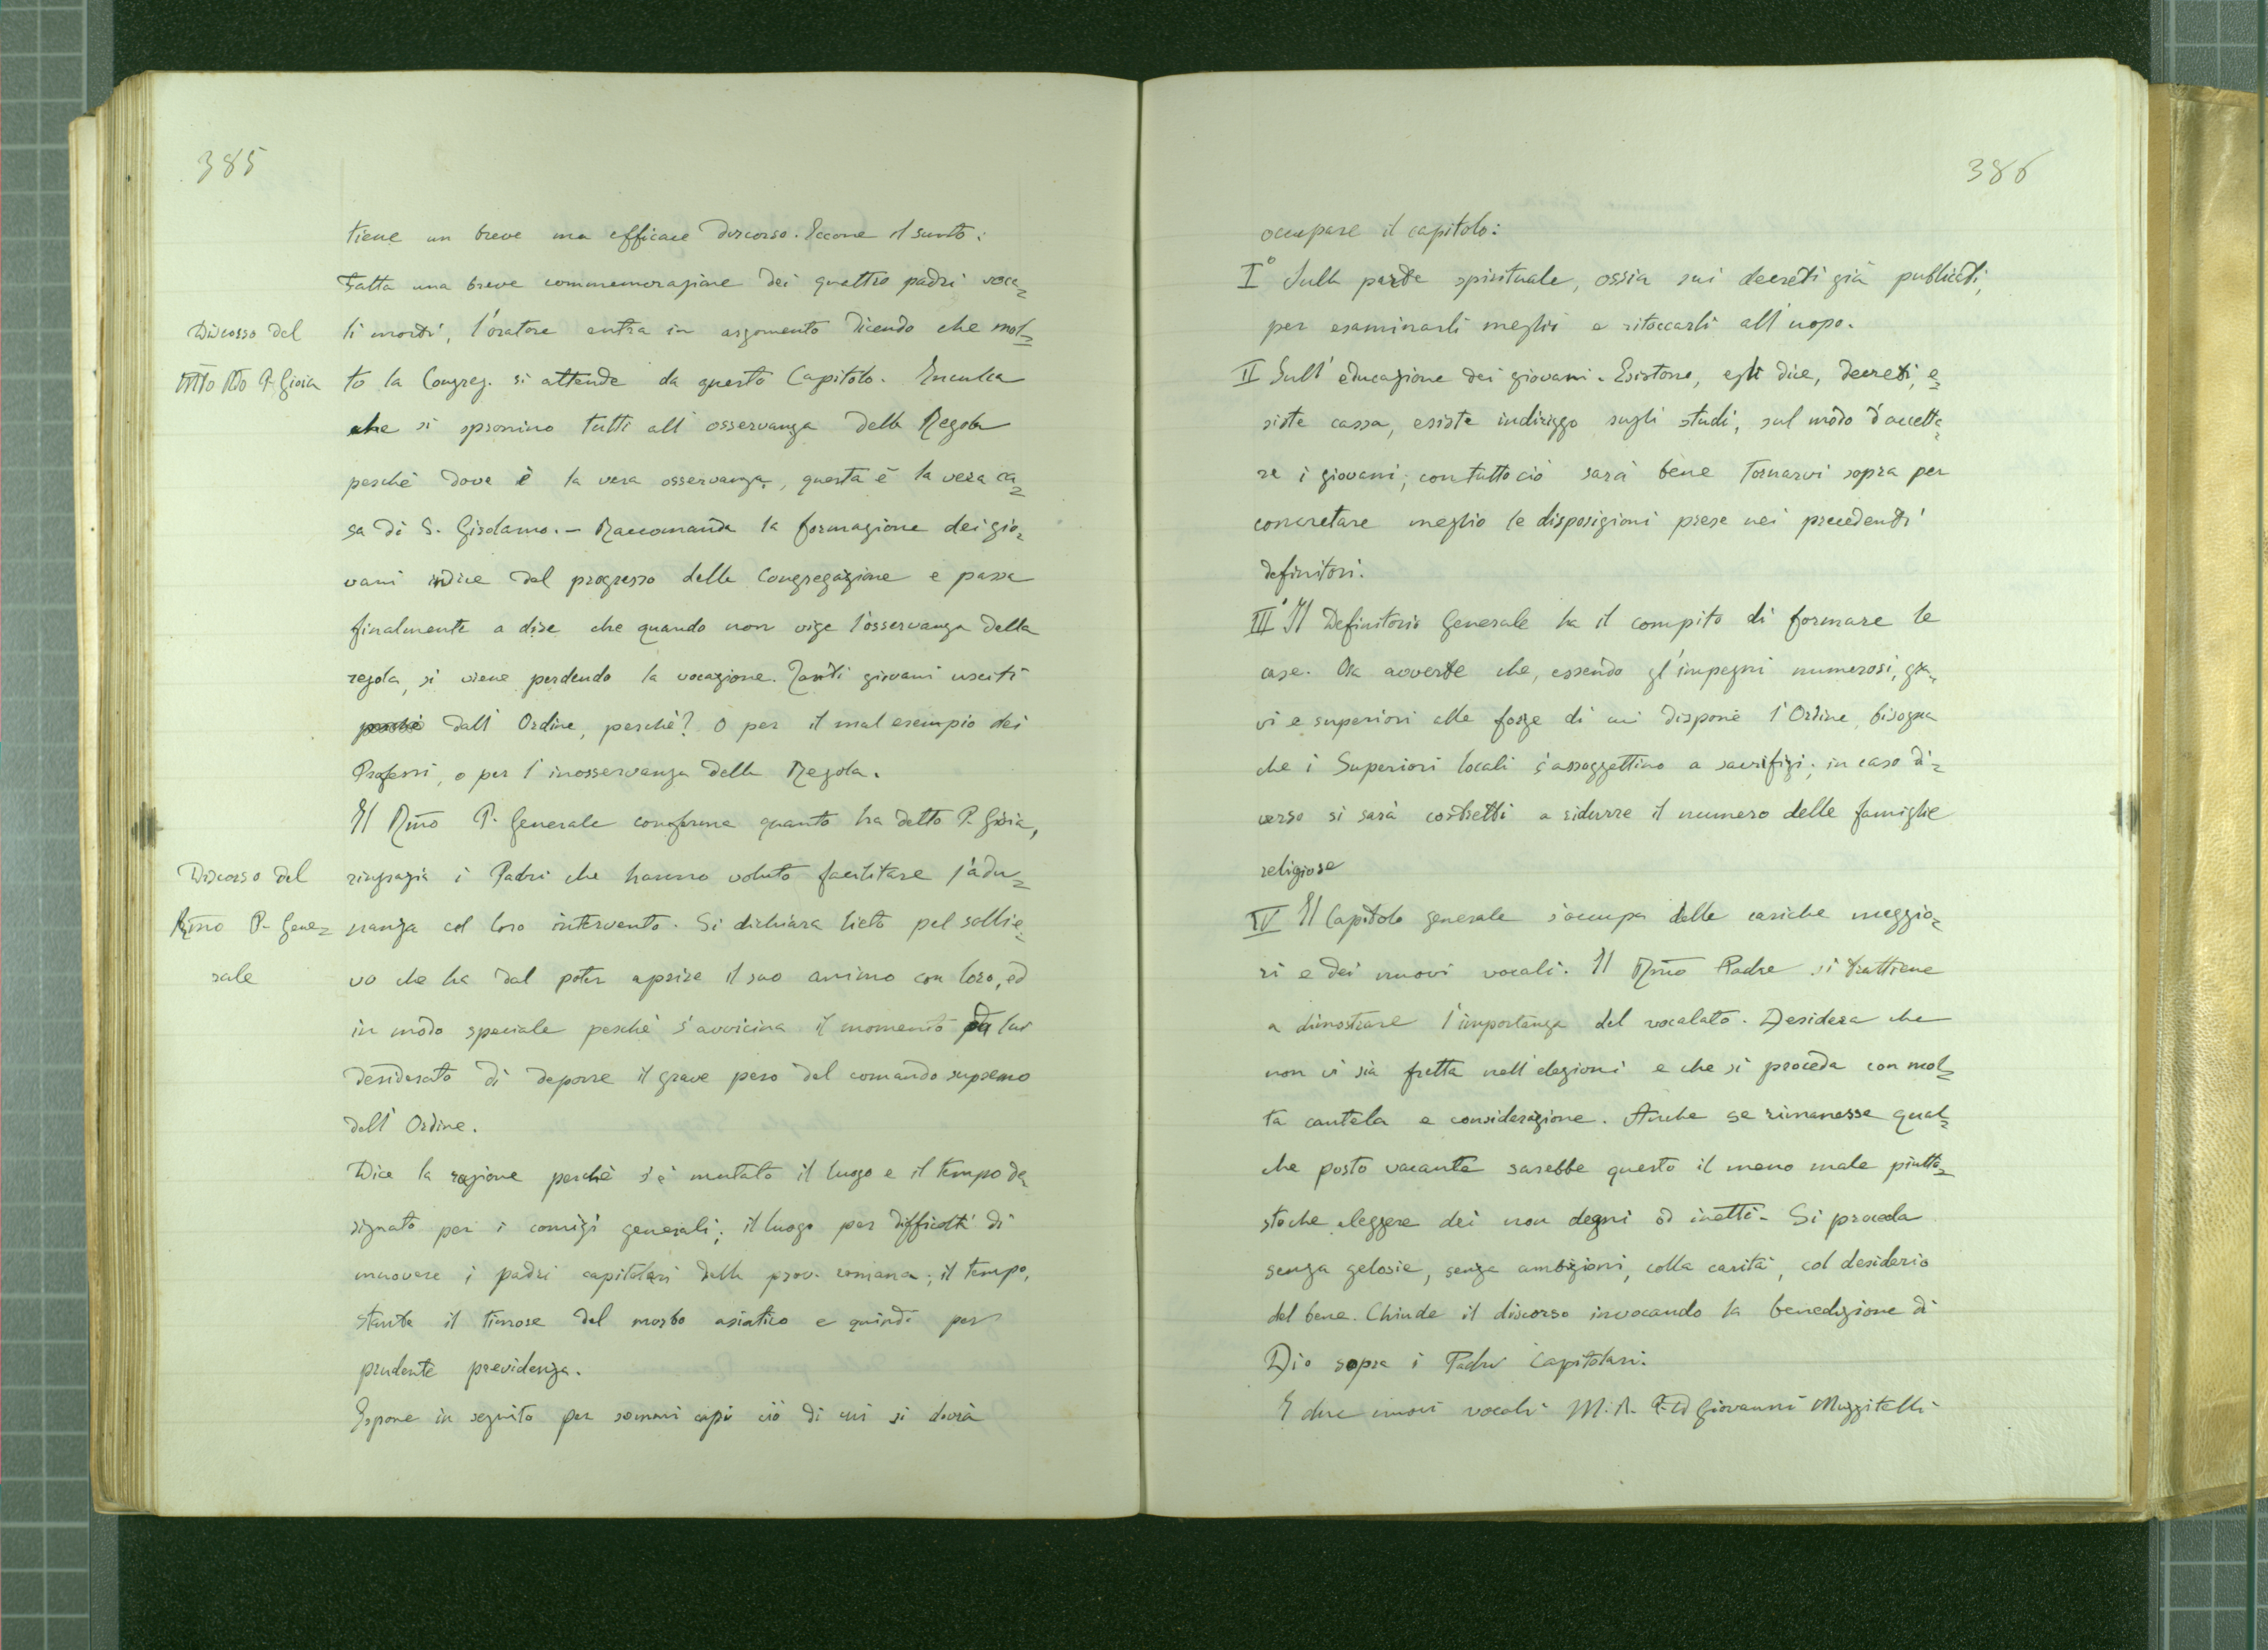 385
tiene un breve ma efficace discorso. Eccone il sunto:
Fatta una breve commemorazione dei quattro padri voca=
Discorso del
li morti, l'oratore entra in argomento dicendo che mol=
M̃to Rdo P. Gioia
to la Congreg. si attende da questo Capitolo. Inculca
che si spronino tutti all'osservanza della Regola
perchè dove è la vera osservanza, questa è la vera ca=
sa di S. Girolamo. - Raccomanda la formazione dei gio=
vani indice del progresso della Congregazione e passa
finalmente a dire che quando non vige l'osservanza della
regola, si viene perdendo la vocazione. Tanti giovani usciti
perchè dall'Ordine, perchè? O per il mal esempio dei
Professi, o per l'inosservanza della Regola.
Il Rm̃o P. Generale conferma quanto ha detto P. Gioia,
Discorso del
ringrazia i Padri che hanno voluto facilitare l'adu=
Rm̃o P. Gene=
nanza col loro intervento. Si dichiara lieto pel sollie=
rale
vo che ha dal poter aprire il suo animo con loro, ed
in modo speciale perchè s'avvicina il momento da lui
desiderato di deporre il grave peso del comando supremo
dell'Ordine.
Dice la ragione perchè s'è mutato il luogo e il tempo de=
signato per i comizi generali; il luogo per difficoltà di
muovere i padri capitolari della prov. romana; il tempo,
stante il timore del morbo asiatico e quindi per
prudente previdenza.
Espone in seguito per sommi capi ciò di cui si dovrà
386
occupare il capitolo:
I° Sulla parte spirituale, ossia sui decreti già publicati,
per esaminarli meglio e ritoccarli all'uopo.
II Sull'educazione dei giovani. Esistono, egli dice, decreti, e=
siste cassa, esiste indirizzo sugli studi, sul modo d'accetta=
re i giovani; contuttociò sarà bene tornarvi sopra per
concretare meglio le disposizioni prese nei precedenti
definitori.
III° Il Definitorio Generale ha il compito di formare le
case. Ora avverte che, essendo gl'impegni numerosi, gra=
vi e superiori alle forze di cui dispone l'Ordine, bisogna
che i Superiori locali s'assoggettino a sacrifizi; in caso di=
verso si sarà costretti a ridurre il numero delle famiglie
religiose
IV Il Capitolo generale s'occupa delle cariche maggio=
ri e dei nuovi vocali. Il Rm̃o Padre si trattiene
a dimostrare l'importanza del vocalato. Desidera che
non vi sia fretta nell'elezioni e che si proceda con mol=
ta cautela e considerazione. Anche se rimanesse qual=
che posto vacante sarebbe questo il meno male piutto=
stoche eleggere dei non degni od inetti. Si proceda
senza gelosie, senza ambizioni, colla carità, col desiderio
del bene. Chiude il discorso invocando la benedizione di
Dio sopra i Padri Capitolari.
I due nuovi vocali M. R. P. D Giovanni Muzzitelli